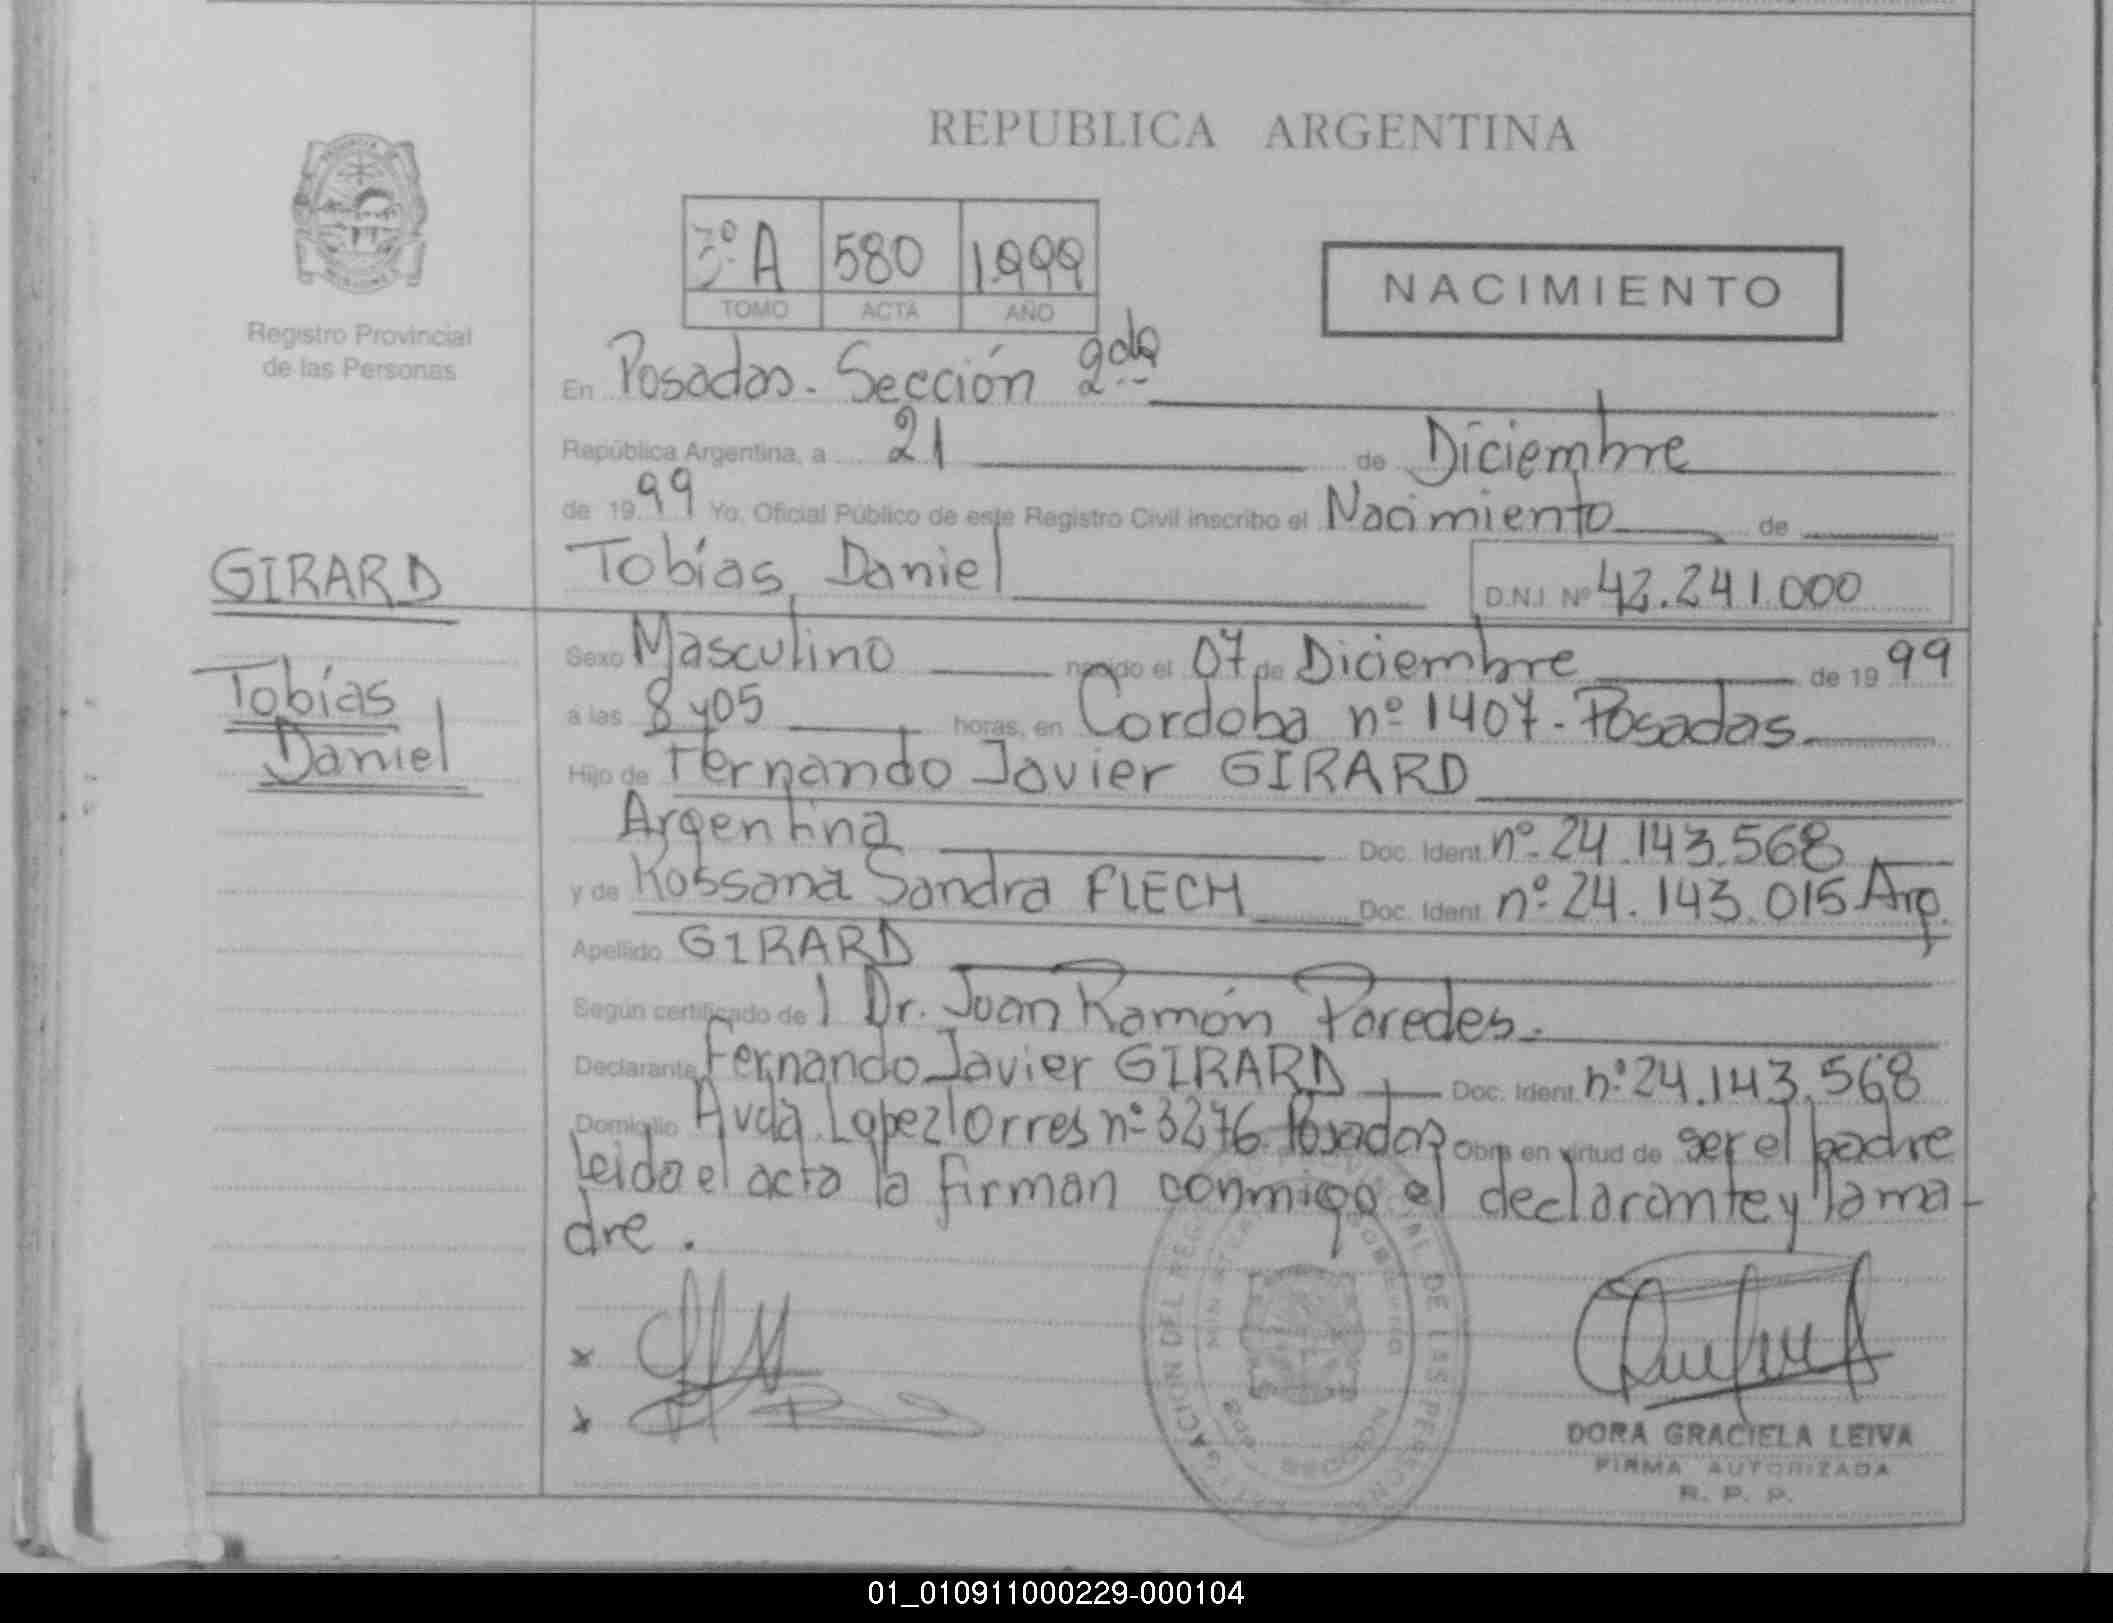 REPUBLICA ARGENTINA
3º A 580 1999
TOMO ACTA AÑO
NACIMIENTO
Registro Provincial
de las Personas
En Posadas. Sección 2da
República Argentina, a 21 de Diciembre
de 1999 Yo, Oficial Público de este Registro Civil inscribo el Nacimiento de
GIRARD
Tobías
Daniel
Tobías Daniel D.N.I. Nº 42.241.000
Sexo Masculino nacido el 07 de Diciembre de 1999
a las 8 y 05 horas, en Cordoba nº 1407 - Posadas
Hijo de Fernando Javier GIRARD
Argentina Doc. Ident. nº 24.143.568
y de Rossana Sandra FLECH Doc. Ident. nº 24.143.015 Arg.
Apellido GIRARD
Según certificado de l Dr. Juan Ramón Paredes.
Declarante Fernando Javier GIRARD Doc. Ident. nº 24.143.568
Domicilio Avda. Lopez Torres nº 3276 Posadas Obra en virtud de ser el padre
leida el acta la firman conmigo el declarante y la ma-
dre.
DORA GRACIELA LEIVA
FIRMA AUTORIZADA
R. P. P.
01_010911000229-000104